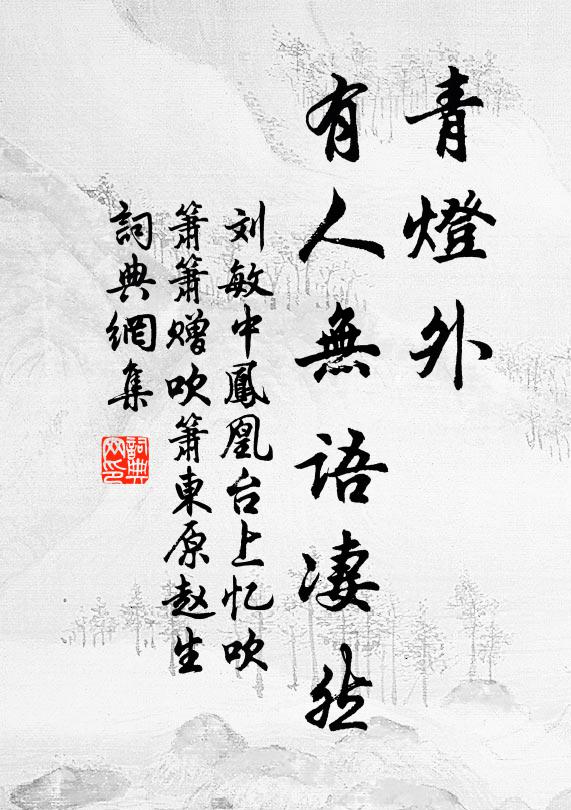 青燈外
有人無語凄然
刘敏中鳳凰台上忆吹
簫簫赠吹簫東原赵生
詞典網集
詞典
网印